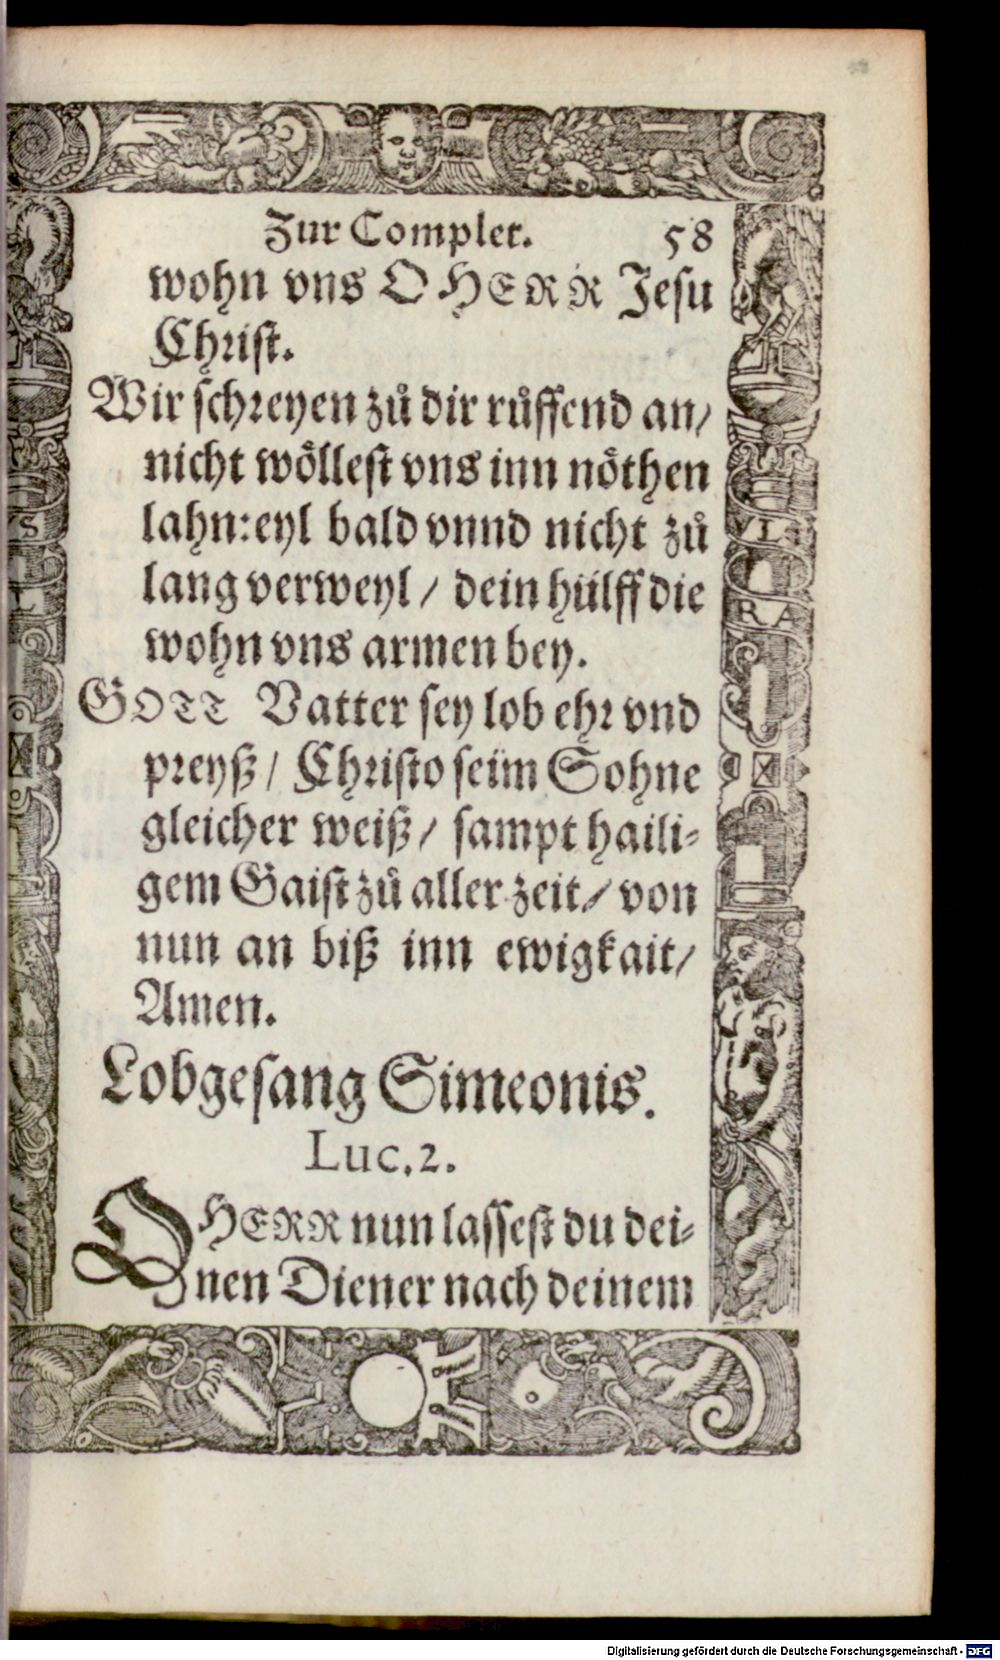 Zur Complet. 58
wohn vns O HERR Jesu
Christ.
Wir schreyen zů dir růffend an/
nicht wöllest vns inn nöthen
lahn: eyl bald vnnd nicht zů
lang verweyl / dein hülff die
wohn vns armen bey.
GOTT Vatter sey lob ehr vnd
preyß / Christo seim Sohne
gleicher weiß / sampt haili-
gem Gaist zů aller zeit / von
nun an biß inn ewigkait /
Amen.
Lobgesang Simeonis.
Luc. 2.
O HERR nun lassest du dei-
nen Diener nach deinem
Digitalisierung gefördert durch die Deutsche Forschungsgemeinschaft - DFG